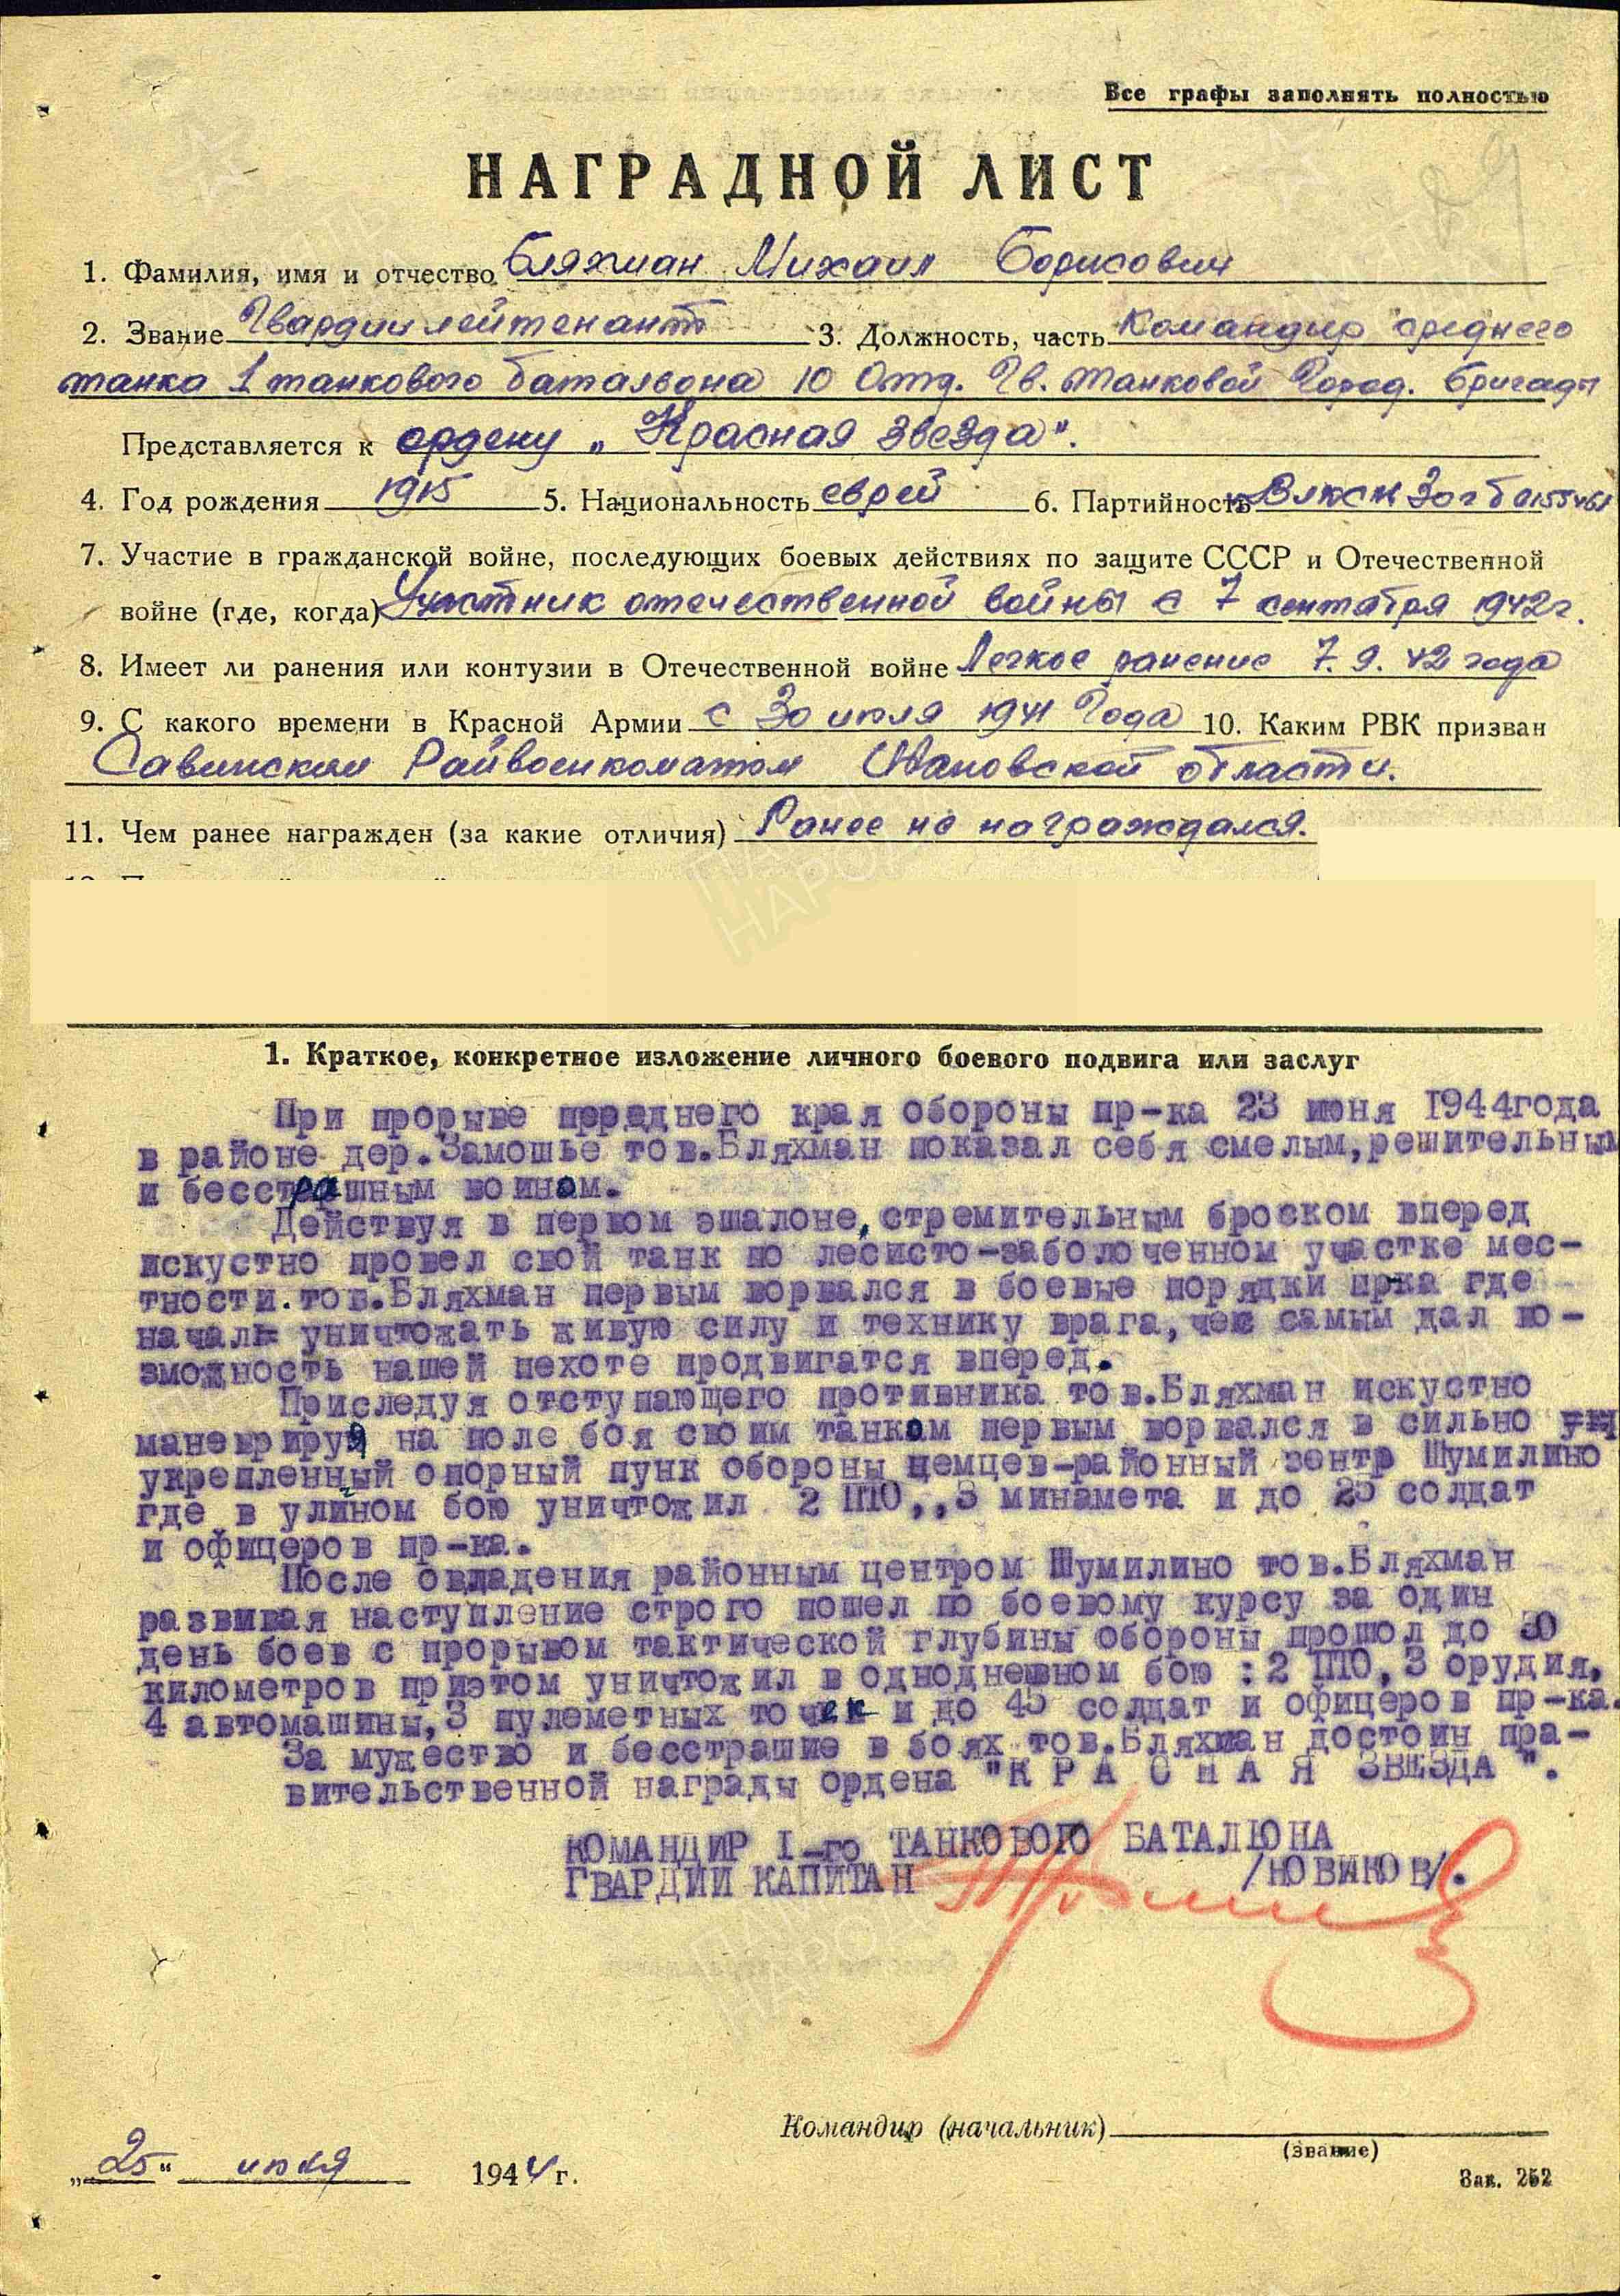 Все графы заполнять полностью
НАГРАДНОЙ ЛИСТ
1. Фамилия, имя и отчество Бляхман Михаил Борисович
2. Звание Гвардии лейтенант 3. Должность, часть Командир среднего
танка 1 танкового батальона 10 Отд. Гв. танковой Город. бригады
Представляется к ордену „Красная звезда".
4. Год рождения 1915 5. Национальность еврей 6. Партийность ВЛКСМ
7. Участие в гражданской войне, последующих боевых действиях по защите СССР и Отечественной
войне (где, когда) Участник отечественной войны с 7 сентября 1942г.
8. Имеет ли ранения или контузии в Отечественной войне Легкое ранение 7.9.42 года
9. С какого времени в Красной Армии с 30 июля 1941 Года 10. Каким РВК призван
Савинским Райвоенкоматом Ивановской области.
11. Чем ранее награжден (за какие отличия) Ранее не награждался.
1. Краткое, конкретное изложение личного боевого подвига или заслуг
При прорыве переднего края обороны пр-ка 23 июня 1944года
в районе дер.Замошье тов.Бляхман показал себя смелым,решительным
и бесстрашным воином.
Действуя в первом эшалоне,стремительным броском вперед
искустно провел свой танк по лесисто-заболоченном участке мес-
тности.тов.Бляхман первым ворвался в боевые порядки прка где
начал уничтожать живую силу и технику врага,чем самым дал во-
зможность нашей пехоте продвигатся вперед.
Приследуя отступающего противника тов.Бляхман искустно
маневрируя на поле боя своим танком первым ворвался в сильно
укрепленный опорный пунк обороны немцев-районный зентр Шумилино
где в улином бою уничтожил 2 ПТО,,3 минамета и до 25 солдат
и офицеров пр-ка.
После овладения районным центром Шумилино тов.Бляхман
развивая наступление строго пошел по боевому курсу за один
день боев с прорывом тактической глубины обороны прошол до 30
километров приэтом уничтожил в однодневном бою :2 ПТО,3 орудия,
4 автомашины,3 пулеметных точек и до 45 солдат и офицеров пр-ка
За мужество и бесстрашие в боях тов.Бляхман достоин пра-
вительственной награды ордена "К Р А С Н А Я ЗВЕЗДА ".
КОМАНДИР I-го ТАНКОВОГО БАТАЛЮНА
ГВАРДИИ КАПИТАН /НОВИКОВ/.
Командир (начальник)
(звание)
„25" июля 1944 г.
Зак. 252